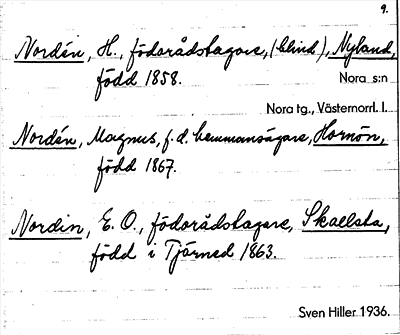 9.
Nordén, H., födorådstagare, (blind), Nyland,
född 1858.
Nora s:n
Nora tg., Västernorrl. l.
Nordén, Magnus, f.d. hemmansägare, Hornön,
född 1867.
Nordin, E. O., födorådstagare, Skaelsta,
född i Tjärned 1863.
Sven Hiller 1936.